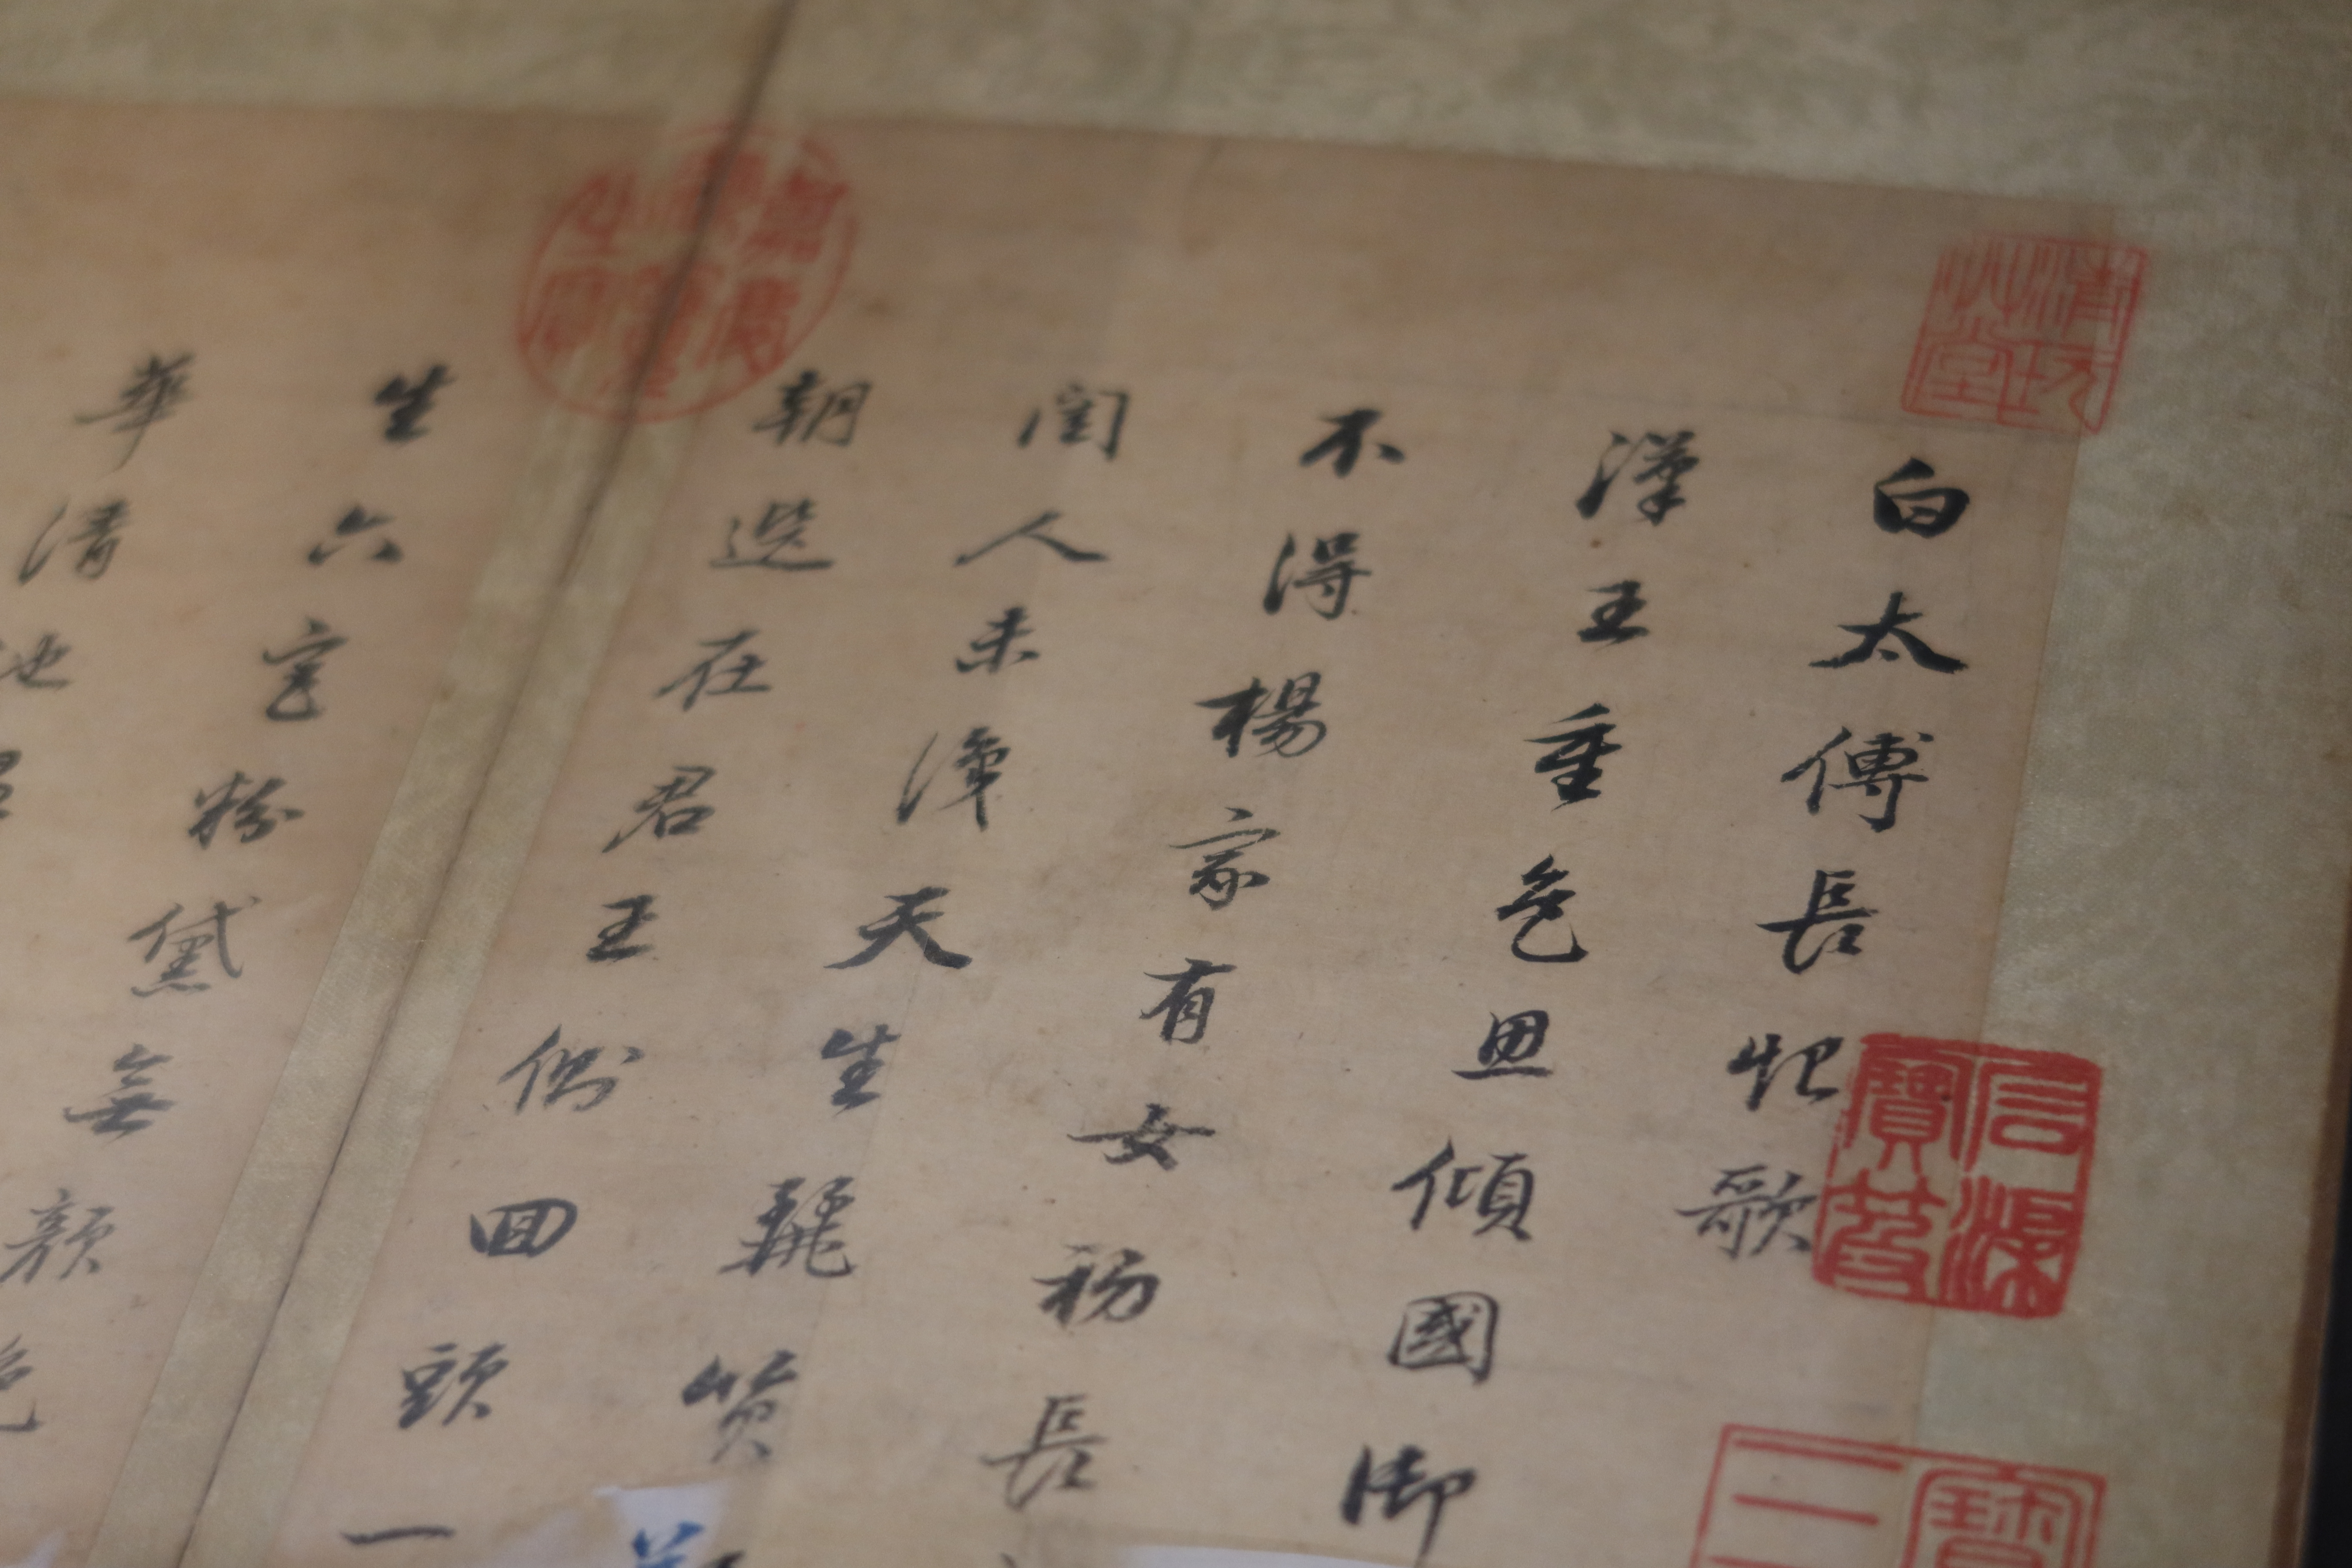 白太傅長恨歌
漢王重色思傾國御
不得楊家有女初長
閨人未識天生麗質
朝選在君王側回頭一
生六宮粉黛無顏色
華清池
清玩
寶